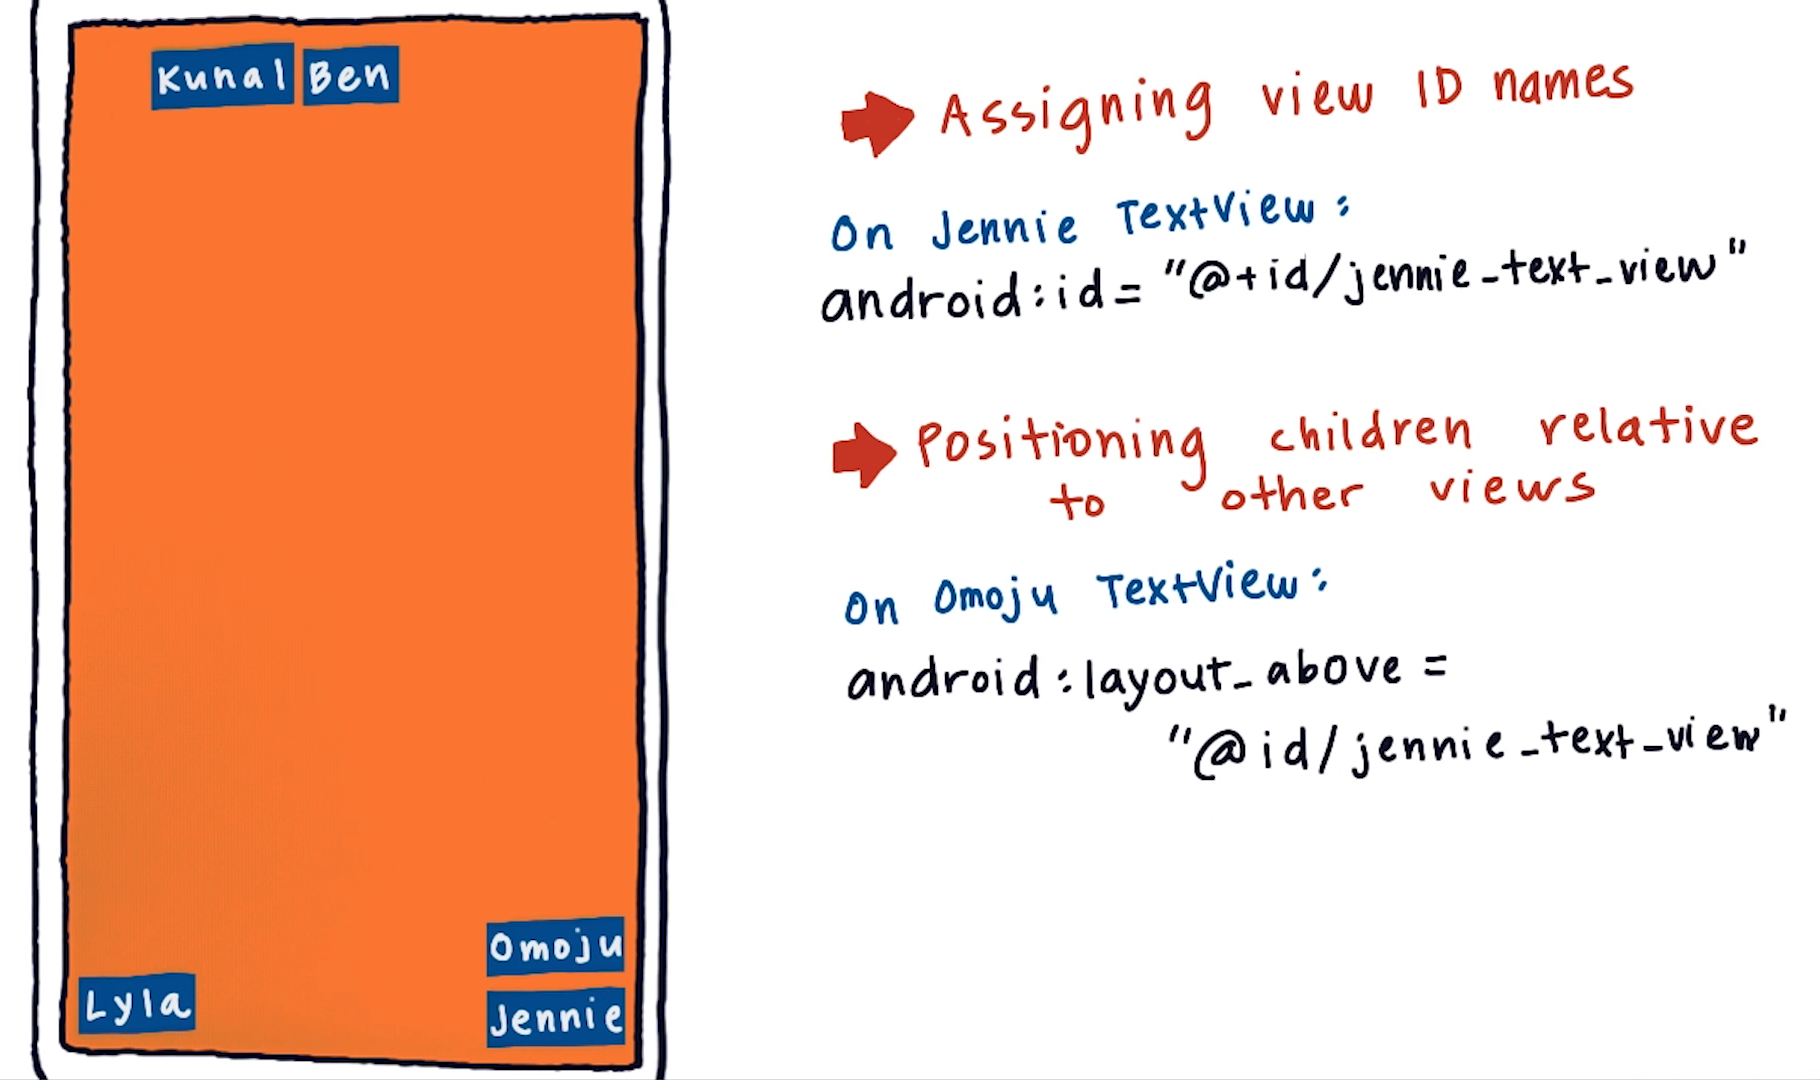 Kunal Ben
Omoju
Lyla
Jennie
Assigning view ID names
On Jennie TextView:
android:id= "@+id/jennie_text_view"
Positioning children relative
to other views
On Omoju TextView:
android:layout_above =
"@id/jennie_text_view"